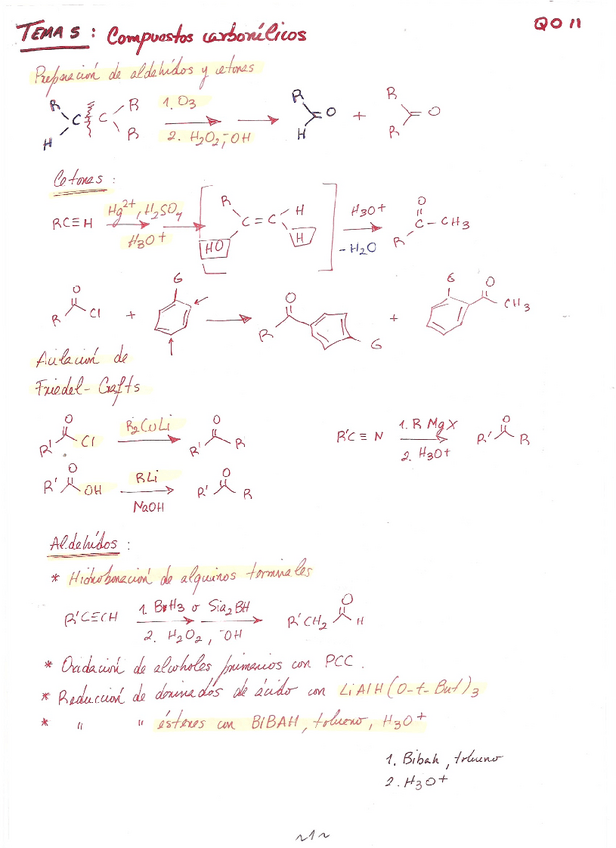 TEMA 5 : Compuestos carbonílicos
QO II
Preparación de aldehídos y cetonas
R H C C R R 1. O3 2. H2O2, -OH R H O + R R O
Cetonas :
RC≡H Hg2+, H2SO4 H3O+ R HO C=C H H H3O+ -H2O O R C-CH3
R O Cl + G O R G + G O CH3
Acilación de
Friedel-Crafts
R' O Cl R2CuLi R' O R
R'C≡N 1. R MgX 2. H3O+ R' O R
R' O OH RLi NaOH R' O R
Aldehídos :
* Hidroboración de alquinos terminales
R'C≡CH 1. BH3 o Sia2BH 2. H2O2, -OH R'CH2 O H
* Oxidación de alcoholes primarios con PCC.
* Reducción de de ácido con LiAlH(O-t-But)3
* " " ésteres con BIBAH, tolueno, H3O+
1. Bibah, tolueno
2. H3O+
~1~